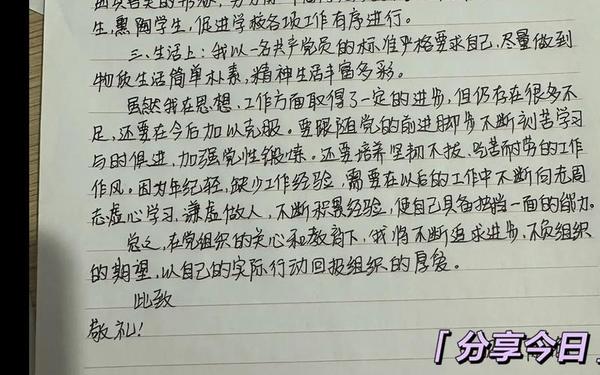 生,熏陶学生,促进学校各项工作有序进行。
三、生活上:我以一名共产党员的标准严格要求自己,尽量做到
物质生活简单朴素,精神生活丰富多彩。
虽然我在思想、工作方面取得了一定的进步,但仍存在很多不
足,还要在今后加以克服。要跟随党的前进脚步不断刻苦学习
与时俱进,加强党性锻炼。还要培养坚韧不拔、吃苦耐劳的工作
作风。因为年纪轻,缺少工作经验,需要在以后的工作中不断向老同
志虚心学习,谦虚做人,不断积累经验,使自己具备独挡一面的能力。
总之,在党组织的关心和教育下,我将不断追求进步,不负组织
的期望,以自己的实际行动回报组织的厚爱。
此致
敬礼!
「分享今日